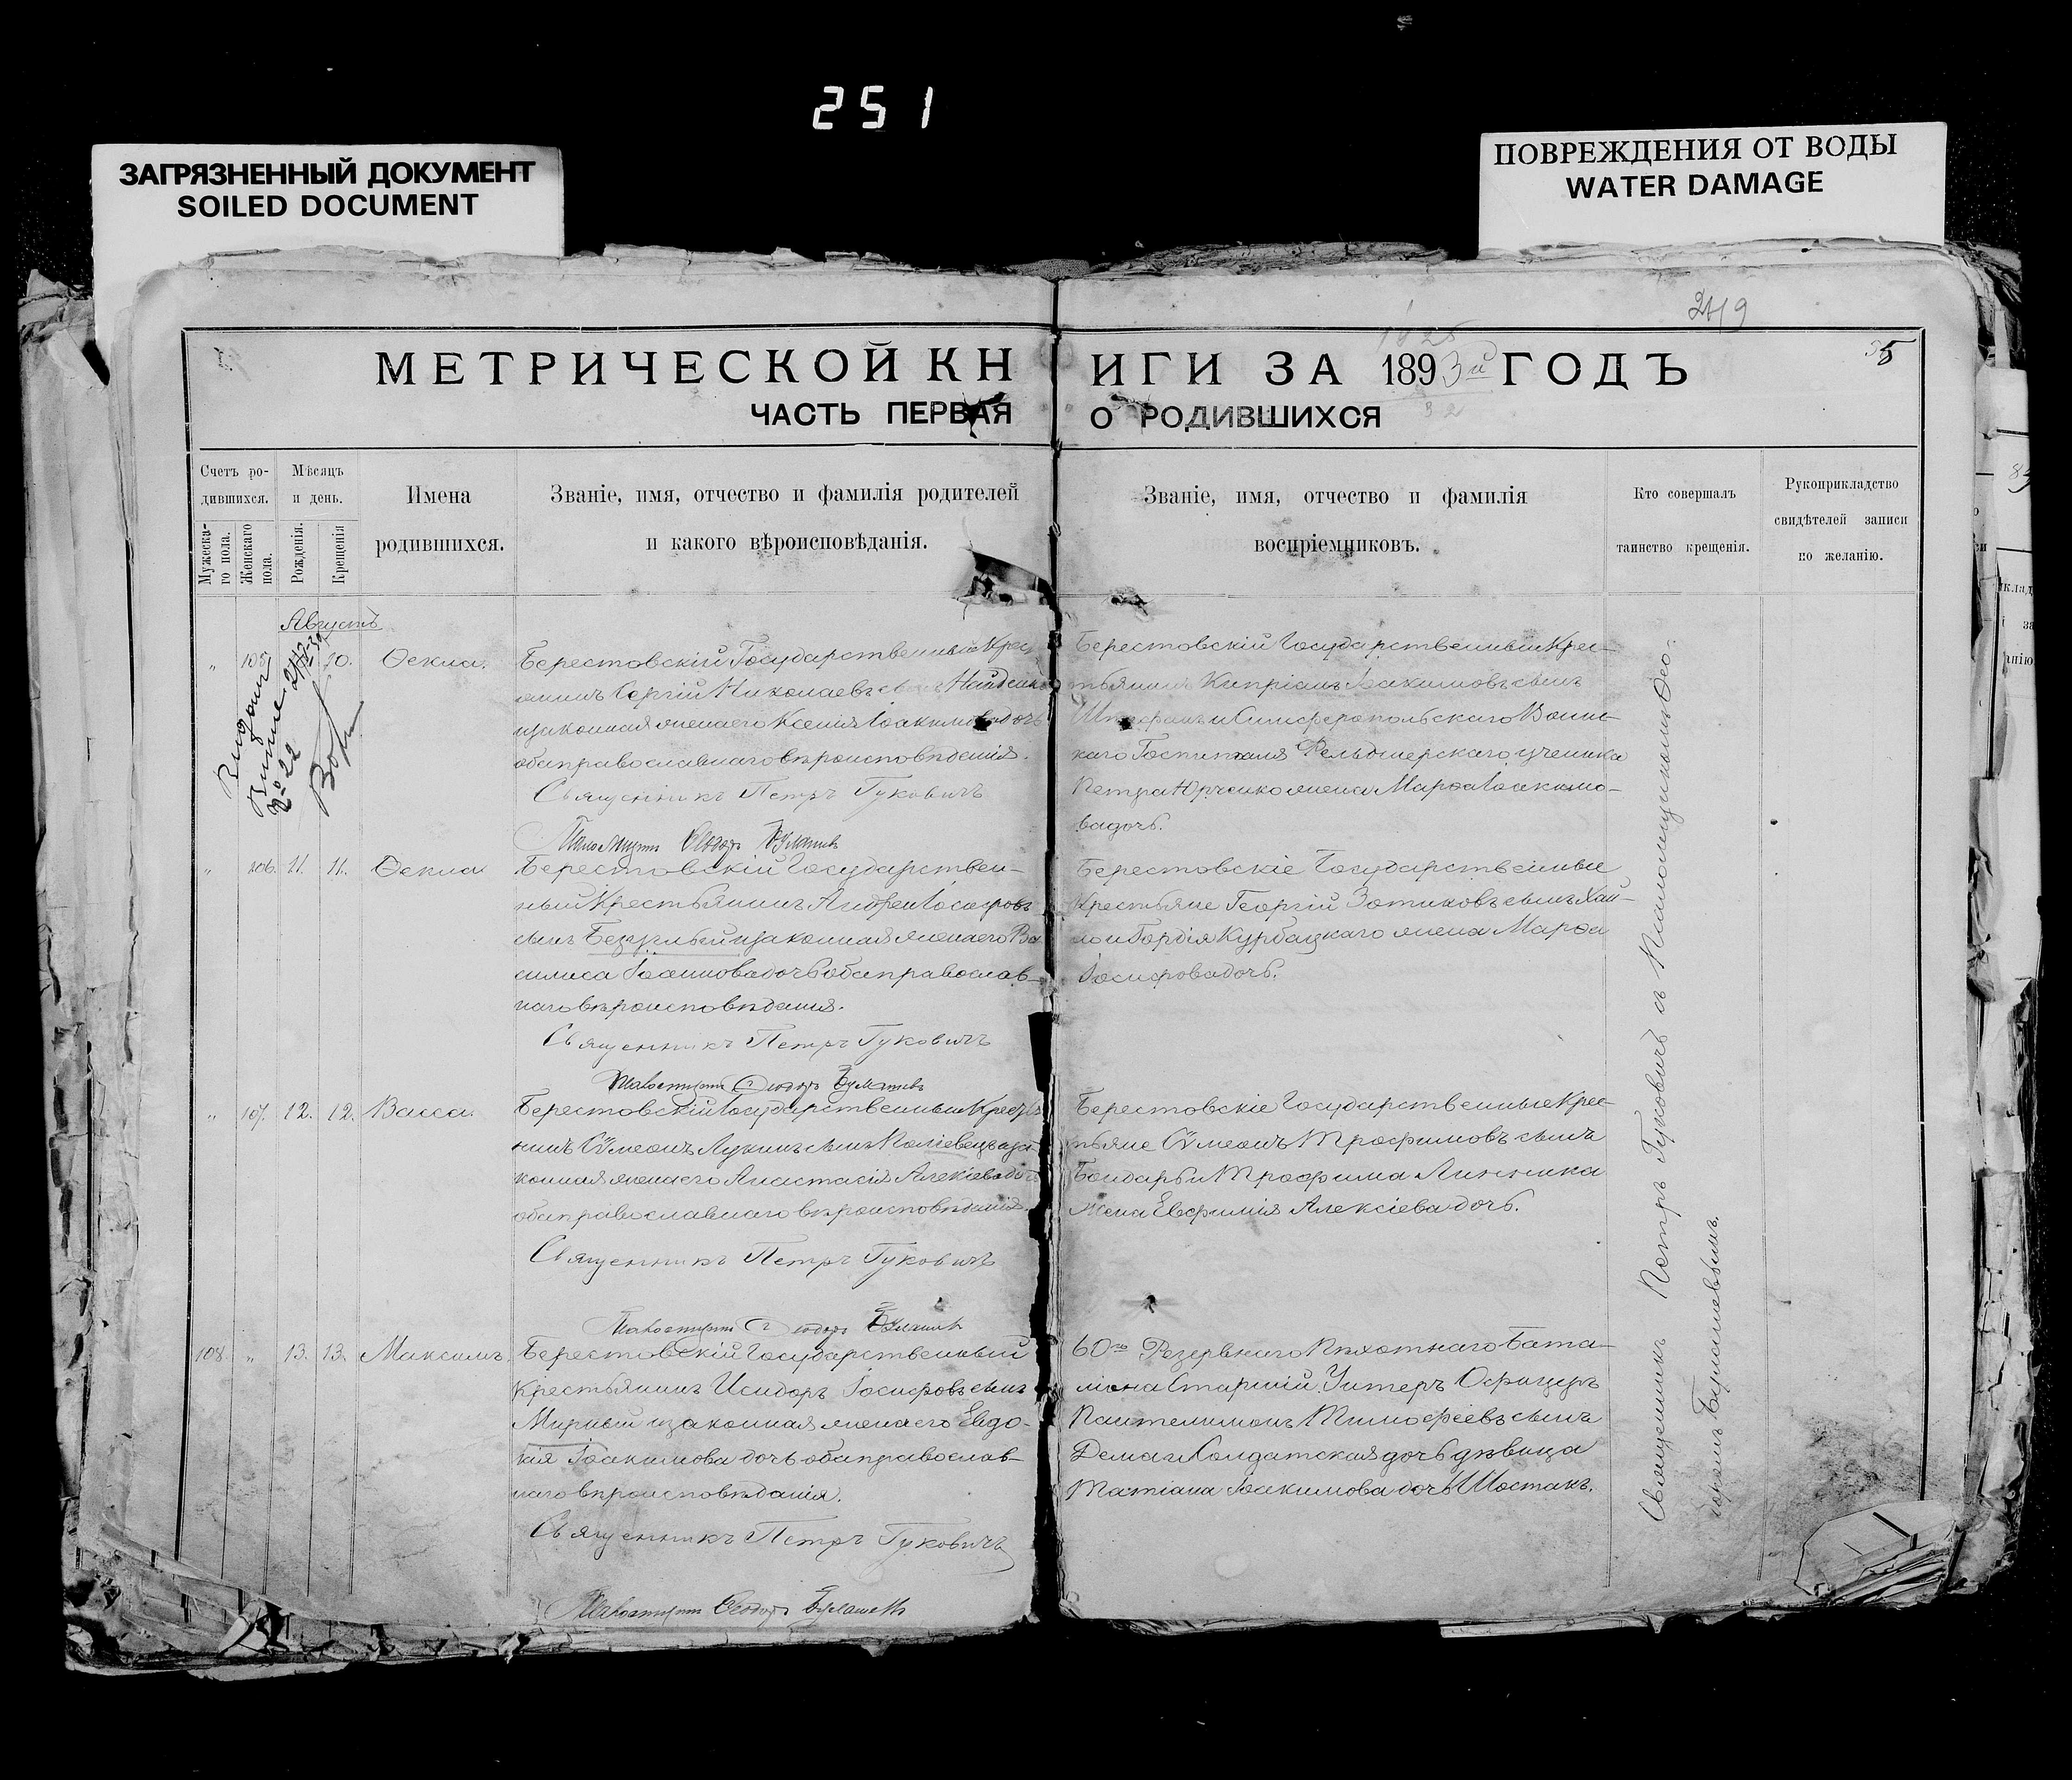 251
ЗАГРЯЗНЕННЫЙ ДОКУМЕНТ
SOILED DOCUMENT
ПОВРЕЖДЕНИЯ ОТ ВОДЫ
WATER DAMAGE
249
МЕТРИЧЕСКОЙ КНИГИ ЗА 1893й ГОДЪ
ЧАСТЬ ПЕРВАЯ О РОДИВШИХСЯ
Счетъ ро-
дившихся.
Мужеска-
го пола.
Женскаго
пола.
Мѣсяцъ
и день.
Рожденія.
Крещенія
Имена
родившихся.
Званіе, имя, отчество и фамилія родителей
и какого вѣроисповѣданія.
Званіе, имя, отчество и фамилія
воспріемниковъ.
Кто совершалъ
таинство крещенія.
Рукоприкладство
свидѣтелей записи
по желанію.
Августъ
" 105. 10. Ѳекла.
Берестовскій Государственный Крес
янинъ Сергій Николаевъ сынъ
изаконная женаего Ксенія Іоакимовадочь
обаправославнаговѣроисповѣданія.
Священникъ Петръ Гуковичъ
Берестовскій Государственный Крес-
тьянинъ Кипріанъ Іоакимовъ сынъ
и Симферопольскаго Воинс-
каго Госпиталя Фельдшерскаго ученика
Петра Юрченко жена Марѳа Іоакимо-
вадочь.
" 106. 11. 11. Ѳекла
Берестовскій Государствен-
ный Крестьянинъ Андрей Іосифовъ
сынъ Безуглый изаконная женаего Ва
силиса Іоанновадочь обаправослав-
наговѣроисповѣданія.
Священникъ Петръ Гуковичъ
Берестовскіе Государственные
Крестьяне Георгій Зотиковъ сынъ Хай-
ло и Гордія Курбацкаго жена Марѳа
Іосифовадочь.
" 107. 12. 12. Васса.
Берестовскій Государственный Крестья
нинъ Сѵмеонъ Лукинъ сынъ иза
конная женаего Анастасія Алексіевадочь
обаправославнаго вѣроисповѣданія.
Священникъ Петръ Гуковичъ
Берестовскіе Государственные Крес-
тьяне Сѵмеонъ Трофимовъ сынъ
Бондарь и Трофима Линника
жена Евфимія Алексіева дочь.
108. " 13. 13. Максимъ.
Берестовскій Государственный
Крестьянинъ Исидоръ Іосифовъ сынъ
Мирный изаконная женаего Евдо-
кія Іоакимова дочь обаправослав-
наговѣроисповѣданія.
Священникъ Петръ Гуковичъ
60го Резервнаго Пѣхотнаго Бата-
ліона Старшій Унтеръ Офицеръ
Пантелимонъ Тимофеевъ сынъ
Дема и Солдатская дочь дѣвица
Татіана Іоакимова дочь Шостакъ.
Священникъ Петръ Гуковичъ съ Псаломщикомъ Ѳео-